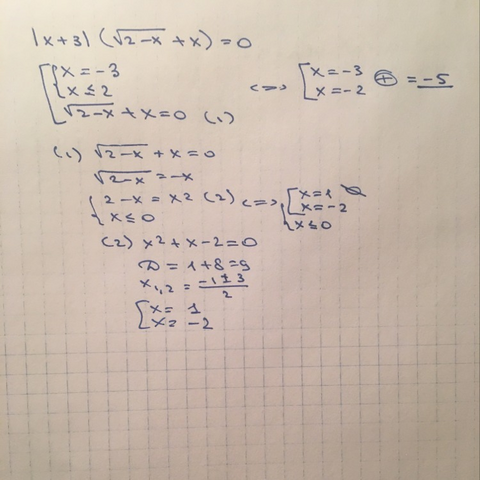 |x+3| (√2-x + x) = 0
[ { x = -3
x ≤ 2
√2-x + x = 0 (1)
<=> [ x = -3
x = -2 ⊕ = -5
(1) √2-x + x = 0
√2-x = -x
{ 2-x = x² (2)
x ≤ 0
<=> { [ x = 1 ∅
x = -2
x ≤ 0
(2) x² + x - 2 = 0
D = 1 + 8 = 9
x₁,₂ = (-1 ± 3)/2
[ x = 1
x = -2